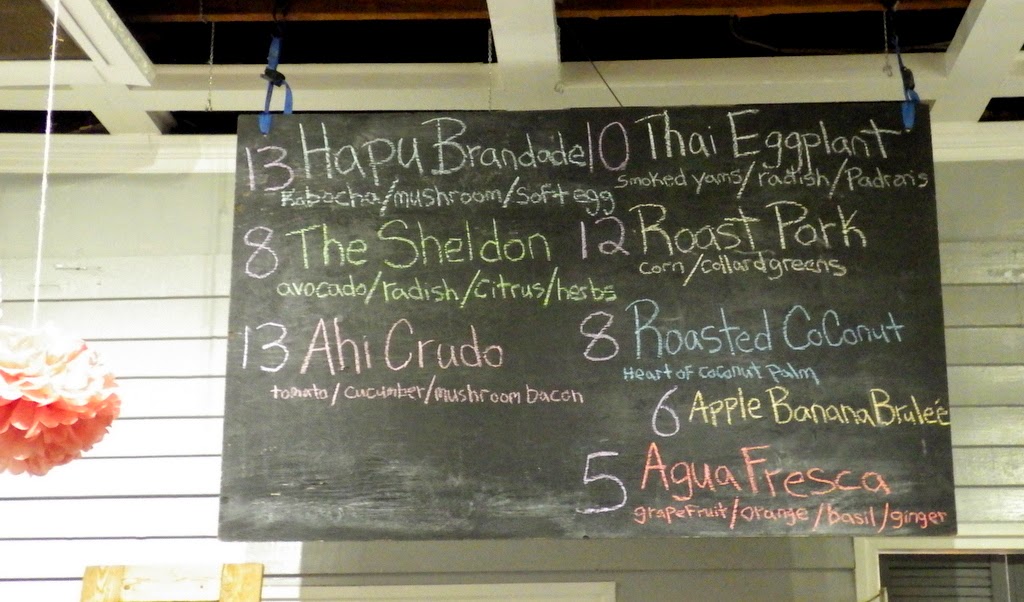 13 Hapu Brandade
Kabocha/mushroom/soft egg
8 The Sheldon
avocado/radish/citrus/herbs
13 Ahi Crudo
tomato/cucumber/mushroom bacon
10 Thai Eggplant
smoked yams/radish/Padrons
12 Roast Pork
corn/collard greens
8 Roasted CoConut
Heart of coconut palm
6 Apple Banana Bruleé
5 Agua Fresca
grapefruit/orange/basil/ginger